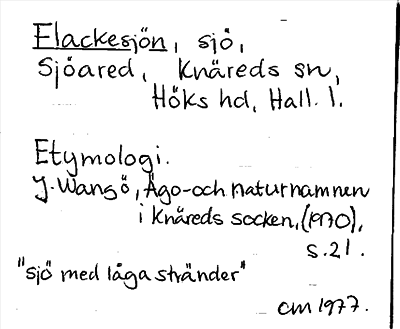 Elackesjön, sjö,
Sjöared, Knäreds sn,
Höks hd, Hall. l.
Etymologi.
J. Wangö, Ägo- och naturnamnen
i Knäreds socken, (1970),
s. 21.
"sjö med låga stränder"
CM 1977.